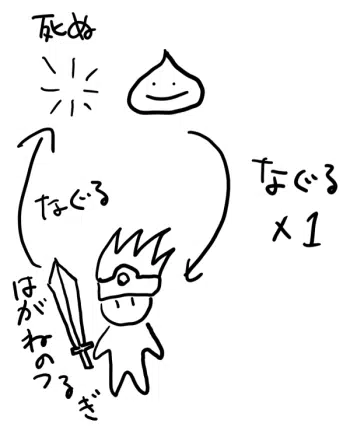 死ぬ
なぐる
なぐる
×1
はがねのつるぎ